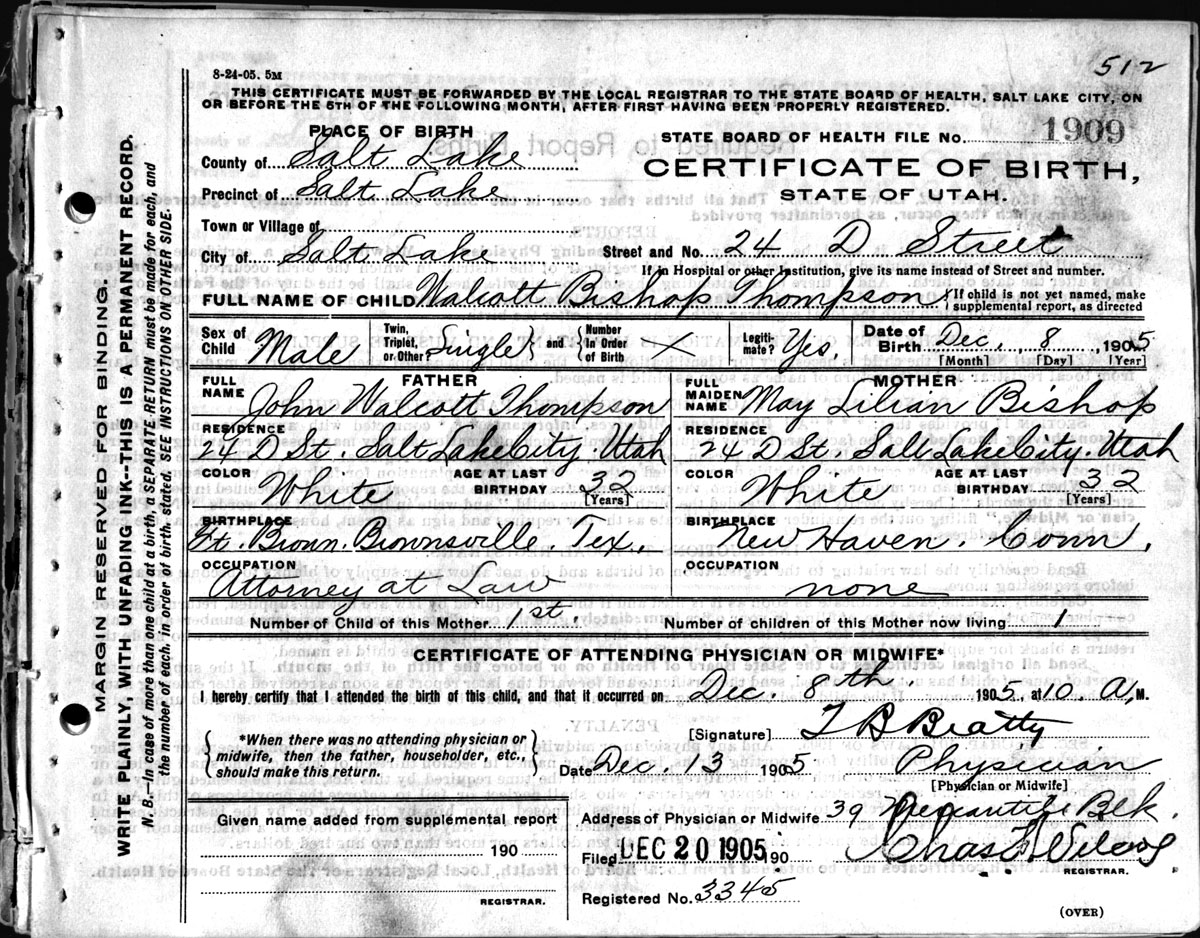 512
8-24-05. 5M
THIS CERTIFICATE MUST BE FORWARDED BY THE LOCAL REGISTRAR TO THE STATE BOARD OF HEALTH, SALT LAKE CITY, ON
OR BEFORE THE 5TH OF THE FOLLOWING MONTH, AFTER FIRST HAVING BEEN PROPERLY REGISTERED.
PLACE OF BIRTH
STATE BOARD OF HEALTH FILE No. 1909
County of Salt Lake
CERTIFICATE OF BIRTH,
Precinct of Salt Lake
STATE OF UTAH.
Town or Village of
City of Salt Lake Street and No. 24 D Street
If in Hospital or other Institution, give its name instead of Street and number.
FULL NAME OF CHILD Walcott Bishop Thompson { If child is not yet named, make
supplemental report, as directed
Sex of Child Male Twin, Triplet, or Other Single and { Number In Order of Birth Legiti-mate? Yes, Date of Birth Dec. 8 1905
[Month] [Day] [Year]
FATHER
FULL NAME John Walcott Thompson
RESIDENCE
24 D St. Salt Lake City. Utah
COLOR White AGE AT LAST BIRTHDAY 32
[Years]
BIRTHPLACE
Ft. Brown. Brownsville, Tex.,
OCCUPATION
Attorney at Law
MOTHER
FULL MAIDEN NAME May Lilian Bishop
RESIDENCE
24 D St. Salt Lake City. Utah
COLOR White AGE AT LAST BIRTHDAY 32
[Years]
BIRTHPLACE
New Haven, Conn,
OCCUPATION
none
Number of Child of this Mother 1st, Number of children of this Mother now living 1
CERTIFICATE OF ATTENDING PHYSICIAN OR MIDWIFE*
I hereby certify that I attended the birth of this child, and that it occurred on Dec. 8th 1905, at 10 A, M.
[Signature] T B Beatty
{ *When there was no attending physician or
midwife, then the father, householder, etc.,
should make this return. }
Date Dec. 13 1905 Physician
[Physician or Midwife]
Given name added from supplemental report
Address of Physician or Midwife 39 Mercantile Blk.
190
Filed DEC 20 1905 190 Chas
REGISTRAR.
Registered No. 3345
REGISTRAR.
(OVER)
MARGIN RESERVED FOR BINDING.
WRITE PLAINLY, WITH UNFADING INK--THIS IS A PERMANENT RECORD.
N. B.—In case of more than one child at a birth, a SEPARATE RETURN must be made for each, and
the number of each, in order of birth stated. SEE INSTRUCTIONS ON OTHER SIDE.